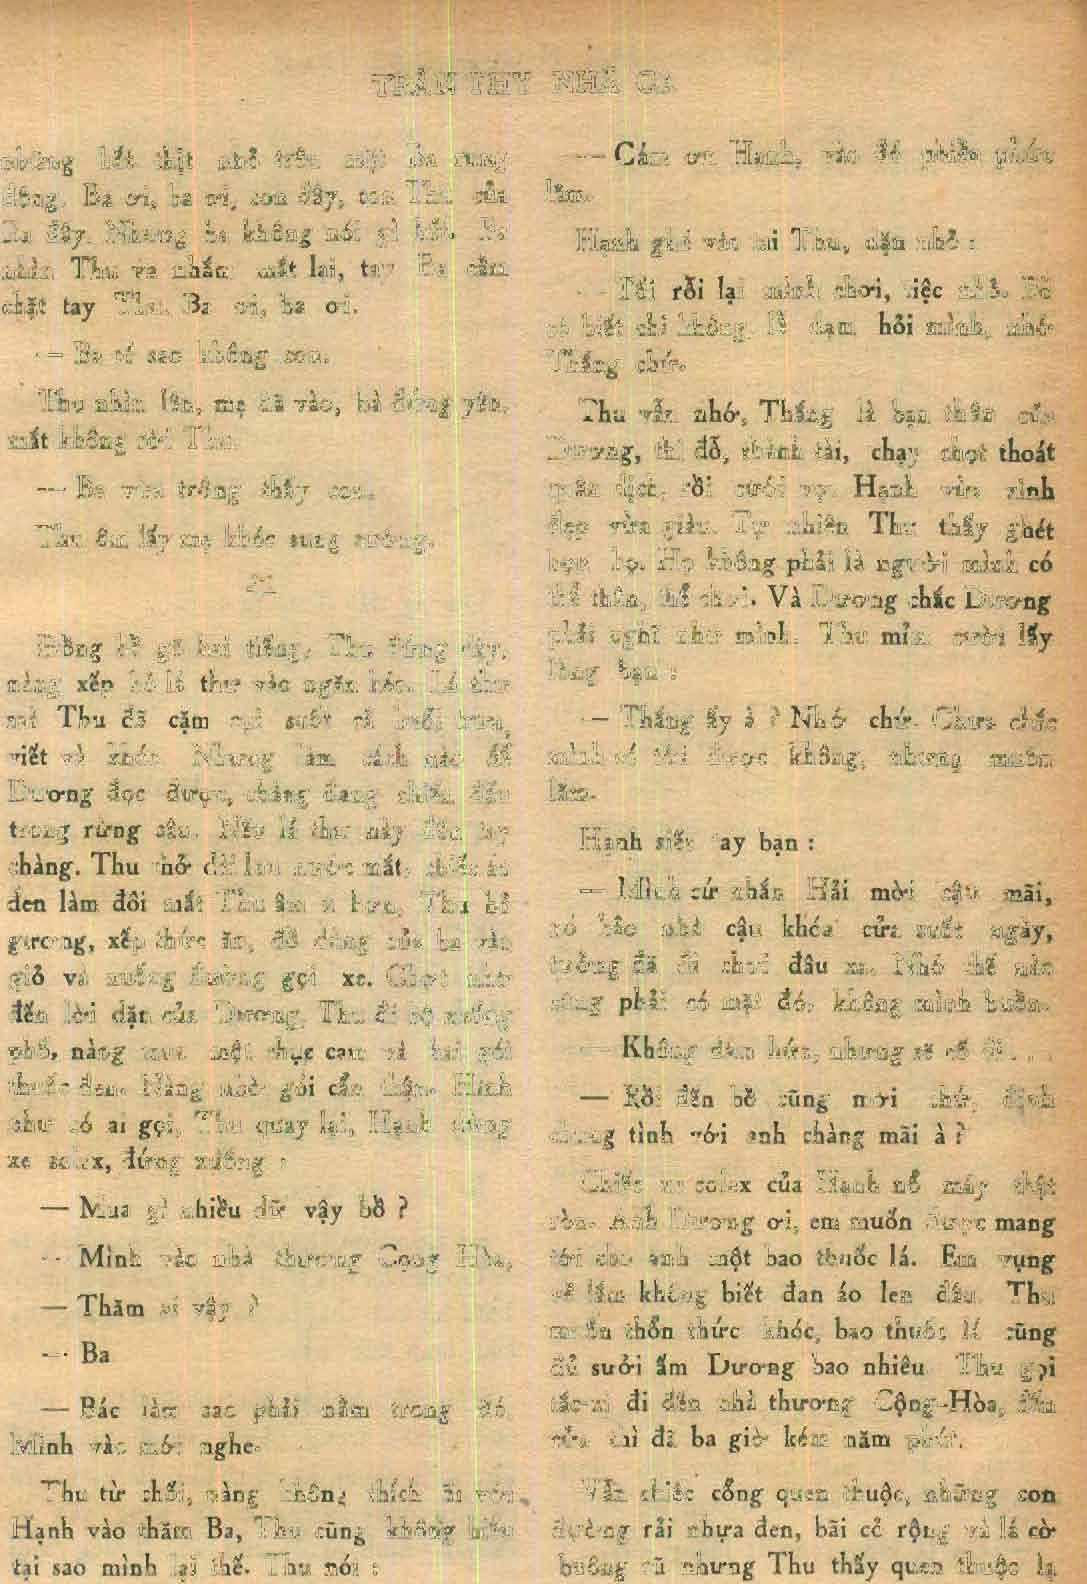 TRẦN THY NHÃ CA
những hớt thịt nhỏ trên mặt Ba rung
động. Ba ơi, ba ơi, con đây, con Thu của
Ba đây. Nhưng ba không nói gì hết. Ba
nhìn Thu và nhắm mắt lại, tay Ba cầm
chặt tay Thu. Ba ơi, ba ơi.
— Ba có sao không con.
Thu nhìn lên, mẹ đã vào, bà đứng yên,
mắt không rời Thu.
— Ba vừa trông thấy con.
Thu ôm lấy mẹ khóc sung sướng.
Đồng hồ gõ hai tiếng, Thu đứng dậy,
nàng xếp bỏ lá thư vào ngăn kéo. Lá thư
mà Thu đã cặm cụi suốt cả buổi trưa,
viết và khóc. Nhưng làm cách nào để
Dương đọc được, chàng đang chiến đấu
trong rừng sâu. Nếu lá thư này đến tay
chàng. Thu thở dài lau nước mắt, chiếc áo
đen làm đôi mắt Thu âm u hơn, Thu bỏ
gương, xếp thức ăn, đồ dùng của ba vào
giỏ và xuống đường gọi xe. Chợt nhớ
đến lời dặn của Dương, Thu đi bộ xuống
phố, nàng mua một chục cam và hai gói
thuốc đen. Nàng nhờ gói cẩn thận. Hình
như có ai gọi, Thu quay lại, Hạnh dừng
xe solex, đứng xuống :
— Mua gì nhiều dữ vậy bồ ?
— Mình vào nhà thương Cộng Hòa.
— Thăm ai vậy ?
— Ba
— Bác làm sao phải nằm trong đó.
Mình vào mới nghe.
Thu từ chối, nàng không thích đi với
Hạnh vào thăm Ba, Thu cũng không hiểu
tại sao mình lại thế. Thu nói :
— Cám ơn Hạnh, vào đó phiền phức
lắm.
Hạnh ghé vào tai Thu, dặn nhỏ :
— Tối rỗi lại mình chơi, tiệc nhỏ. Bồ
có biết chi không, lễ dạm hỏi mình, nhớ
Thắng chứ.
Thu vẫn nhớ, Thắng là bạn thân của
Dương, thi đỗ, thành tài, chạy chọt thoát
quân dịch, rồi cưới vợ. Hạnh vừa xinh
đẹp vừa giàu. Tự nhiên Thu thấy ghét
bọn họ. Họ không phải là người mình có
thể thân, thể chơi. Và Dương chắc Dương
phải nghĩ như mình. Thu mỉm cười lấy
lòng bạn :
— Thắng ấy à ? Nhớ chứ. Chưa chắc
mình có tới được không, nhưng muốn
lắm.
Hạnh siết tay bạn :
— Mình cứ nhắn Hải mời cậu mãi,
nó bảo nhà cậu khóa cửa suốt ngày,
tưởng đã đi chơi đâu xa. Nhớ thế nào
cũng phải có mặt đó, không mình buồn.
— Không dám hứa, nhưng sẽ cố đi...
— Rồi đến bồ cũng mới chứ, định
chung tình với anh chàng mãi à ?
Chiếc xe solex của Hạnh nổ máy thật
ròn. Anh Dương ơi, em muốn được mang
tới cho anh một bao thuốc lá. Em vụng
về lắm không biết đan áo len đâu. Thu
muốn thổn thức khóc, bao thuốc lá cũng
đủ sưởi ấm Dương bao nhiêu. Thu gọi
tắc-xi đi đến nhà thương Cộng-Hòa, đến
cửa thì đã ba giờ kém năm phút.
Vẫn chiếc cổng quen thuộc, những con
đường rải nhựa đen, bãi cỏ rộng và lá cờ
buông rũ nhưng Thu thấy quen thuộc lạ